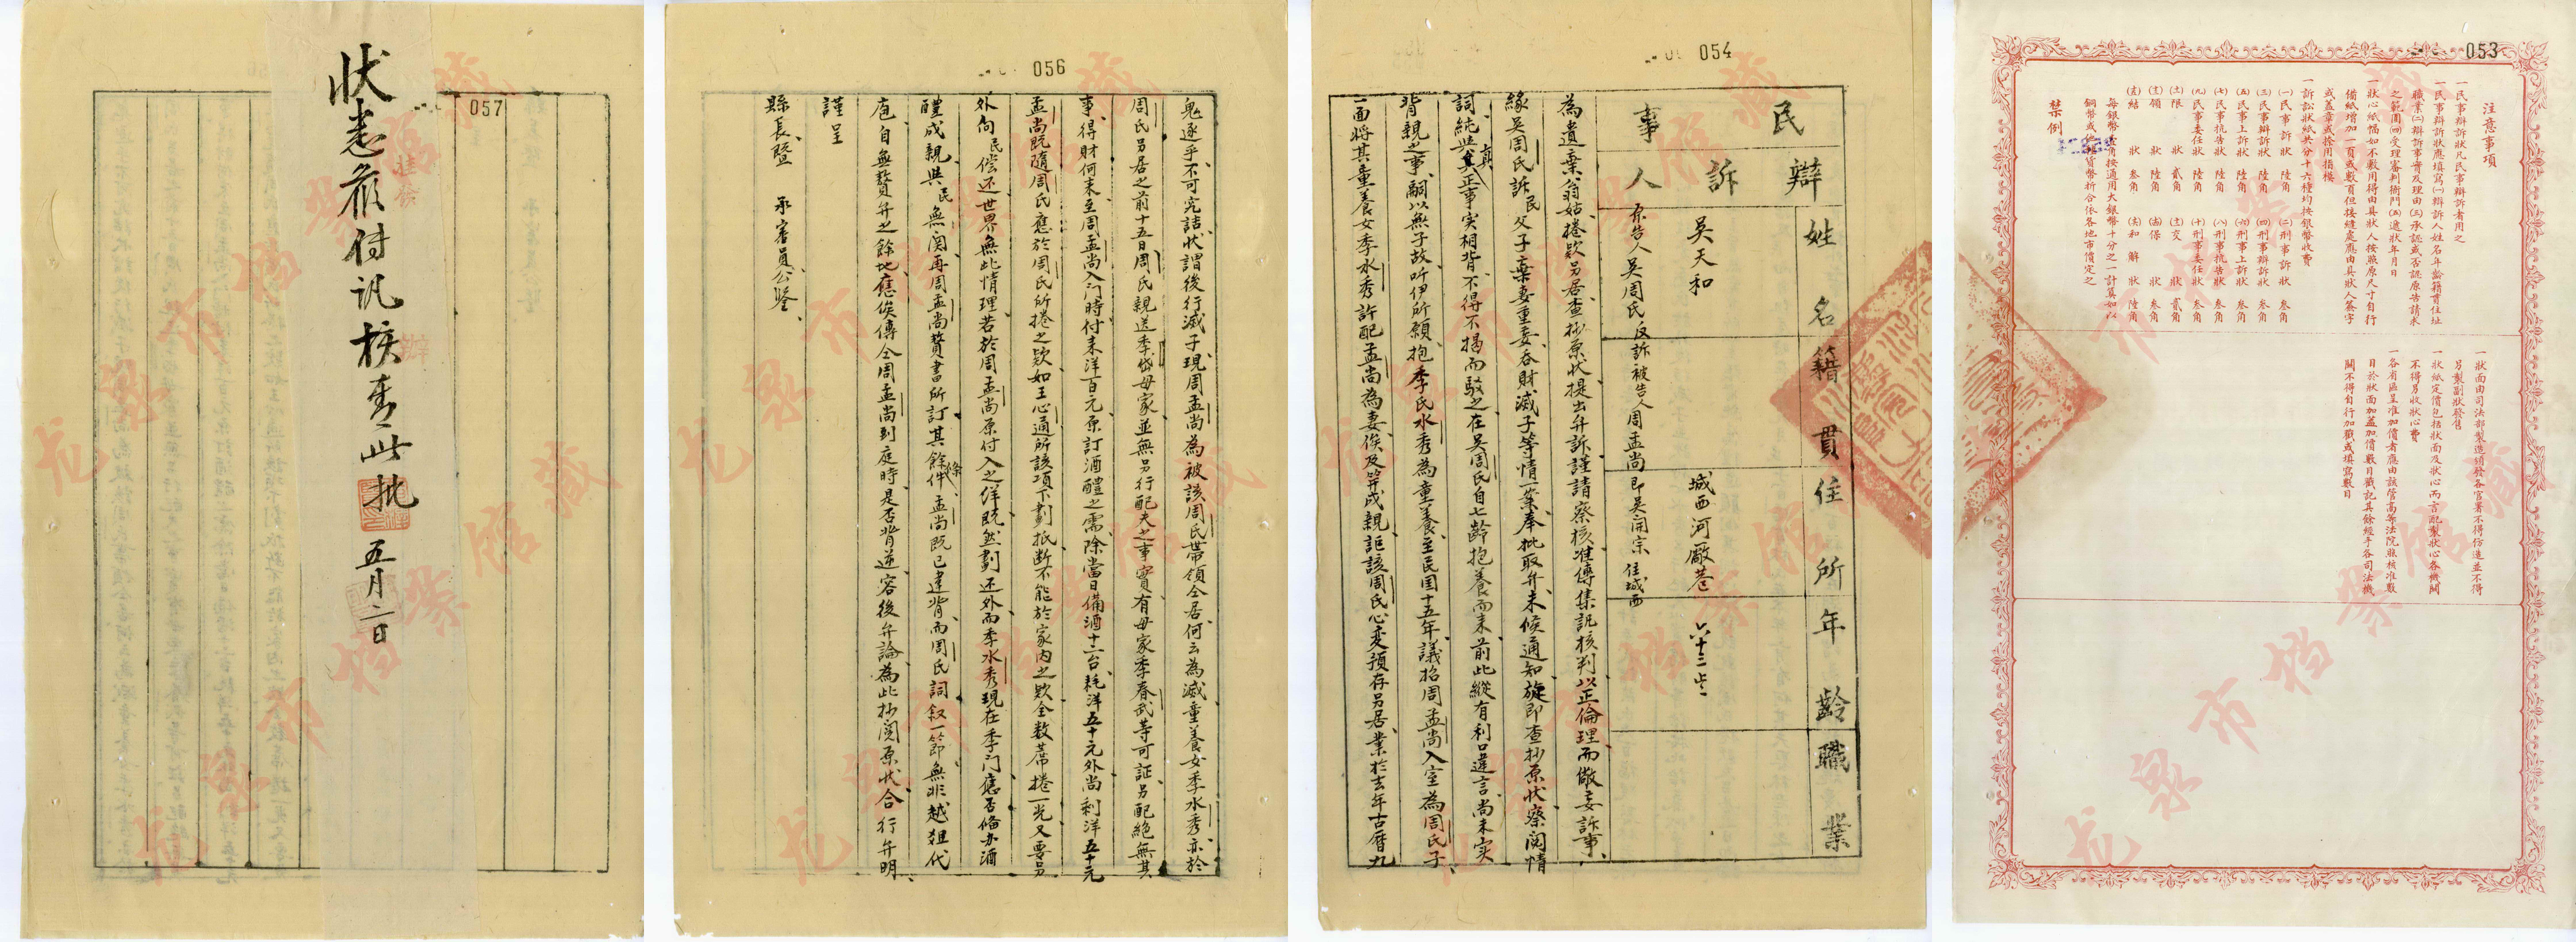 053
注意事項
一民事辯訴狀凡民事辯訴者用之
一民事辯訴狀應填寫㈠辯訴人姓名年齡籍貫住址
職業㈡辯訴事實及理由㈢承認或否認原告請求
之範圍㈣受理審判衙門㈤遞狀年月日
一狀心紙幅如不敷用得由具狀人按照原尺寸自行
備紙增加一頁或數頁但接縫處應由具狀人簽字
或蓋章或捺用指模
一訴訟狀紙共分十六種均按銀幣收費
㈠民事訴狀 陸角 ㈡刑事訴狀 叁角
㈢民事辯訴狀 陸角 ㈣刑事辯訴狀 叁角
㈤民事上訴狀 陸角 ㈥刑事上訴狀 叁角
㈦民事抗告狀 陸角 ㈧刑事抗告狀 叁角
㈨民事委任狀 陸角 ㈩刑事委任狀 叁角
限狀 貳角 交狀 貳角
領狀 陸角 保狀 叁角
結狀 叁角 和解狀 陸角
每銀幣壹角按通用大銀幣十分之一計算如以
銅幣或他貨幣折合依各地市價定之
禁例
一狀面由司法部製造頒發各官署不得仿造並不得
另製副狀發售
一狀紙定價包括狀面及狀心而言配製狀心各機關
不得另收狀心費
一各省區呈准加價者應由該管高等法院縣核准數
目於狀面加蓋加價數目戳記其餘經手各司法機
關不得自行加戳或填寫數目
054
民事
辯訴人
姓名籍貫住所年齡職業
吳天和 城西河厰巷 六十三歲
原告人吳周氏 反訴被告人周孟尚即吳開宗 住城西
為遺棄翁姑捲欵另居查抄原狀提出弁訴謹請察核准傳集訊核判以正倫理而儆妄訴事
緣吳周氏訴民父子棄妻重妾吞財滅子等情一案奉批取弁未候通知旋即查抄原狀察閱情
詞純與真正事实相背不得不揭而駁之在吳周氏自七齡抱養而來前此縱有利口違言尚未实
背親之事嗣以無子故听伊所願抱季氏水秀為童養至民国十五年議招周孟尚入室為周氏子
一面將其童養女季水秀許配孟尚為妻俟及笄成親詎該周氏心变預存另居業於去年古曆九
056
鬼逐乎不可究詰狀謂後行滅子現周孟尚為被該周氏帶領仝居何云為滅童養女季水秀亦於
周氏另居之前十五日周氏親送季岱母家並無另行配夫之事實有母家季春武等可証另配絕無其
事得財何来至周孟尚入门時付来洋百元原訂酒醴之需除當日備酒十二台耗洋五十元外尚剩洋五十元
孟尚既隨周氏應於周氏所捲之欵如王心通所該項下劃抵断不能於家內之欵全数席捲一光又要另
外向民偿还世界無此情理若於周孟尚原付入之洋既然劃还外而季水秀現在季门應否俻办酒
醴成親與民無関再周孟尚贅書所訂其餘條件孟尚既已違背而周氏詞叙一節無非越俎代
庖自無贅弁之餘地應俟傳仝周孟尚到庭時是否背逆容後弁論為此抄閱原狀合行弁明
謹呈
縣長暨 承審員公鑒
057
狀悉候付訊核奪此批
五月二日
龙泉市档案馆藏